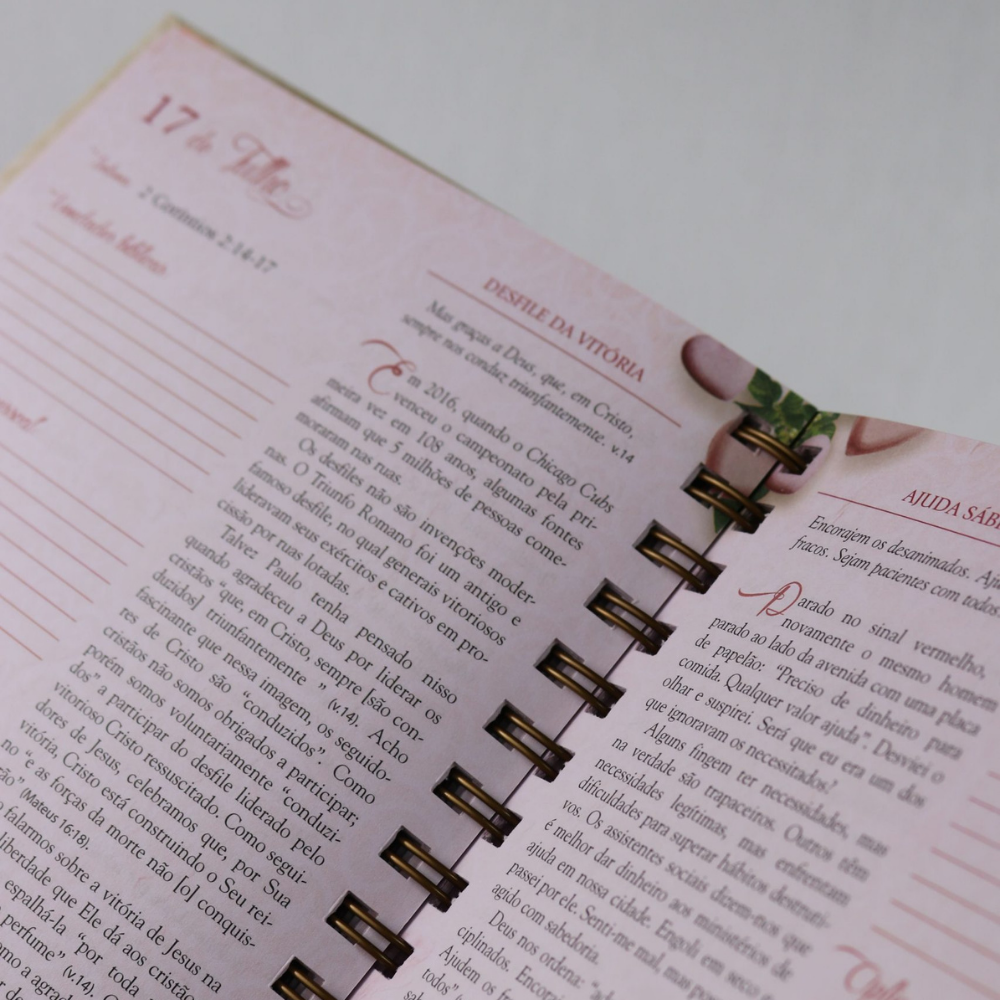 17 de Julho
Leitura: 2 Coríntios 2:14-17
DESFILE DA VITÓRIA
Mas graças a Deus, que, em Cristo,
sempre nos conduz triunfantemente. v.14
Em 2016, quando o Chicago Cubs
venceu o campeonato pela pri-
meira vez em 108 anos, algumas fontes
afirmam que 5 milhões de pessoas come-
moraram nas ruas.
Os desfiles não são invenções moder-
nas. O Triunfo Romano foi um antigo e
famoso desfile, no qual generais vitoriosos
lideravam seus exércitos e cativos em pro-
cissão por ruas lotadas.
Talvez Paulo tenha pensado nisso
quando agradeceu a Deus por liderar os
cristãos "que, em Cristo, sempre [são con-
duzidos] triunfantemente" (v.14). Acho
fascinante que nessa imagem, os seguido-
res de Cristo são "conduzidos". Como
cristãos não somos obrigados a participar;
porém somos voluntariamente "conduzi-
dos" a participar do desfile liderado pelo
vitorioso Cristo ressuscitado. Como segui-
dores de Jesus, celebramos que, por Sua
vitória, Cristo está construindo o Seu rei-
no "e as forças da morte não [o] conquis-
(Mateus 16:18).
falarmos sobre a vitória de Jesus na
liberdade que Ele dá aos cristão
espalhá-la "por toda
perfume" (v.14).
AJUDA SÁB
Encorajem os desanimados. Aj
fracos. Sejam pacientes com todos
Parado no sinal vermelho,
novamente o mesmo homem
parado ao lado da avenida com uma placa
de papelão: "Preciso de dinheiro para
comida. Qualquer valor ajuda". Desviei o
olhar e suspirei. Será que eu era um dos
que ignoravam os necessitados?
Alguns fingem ter necessidades, mas
na verdade são trapaceiros. Outros têm
necessidades legítimas, mas enfrentam
dificuldades para superar hábitos destruti-
vos. Os assistentes sociais dizem-nos que
é melhor dar dinheiro aos ministérios de
ajuda em nossa cidade. Engoli em seco e
passei por ele. Senti-me mal, mas
agido com sabedoria.
Deus nos ordena:
ciplinados. Encora
Ajudem os
todos"